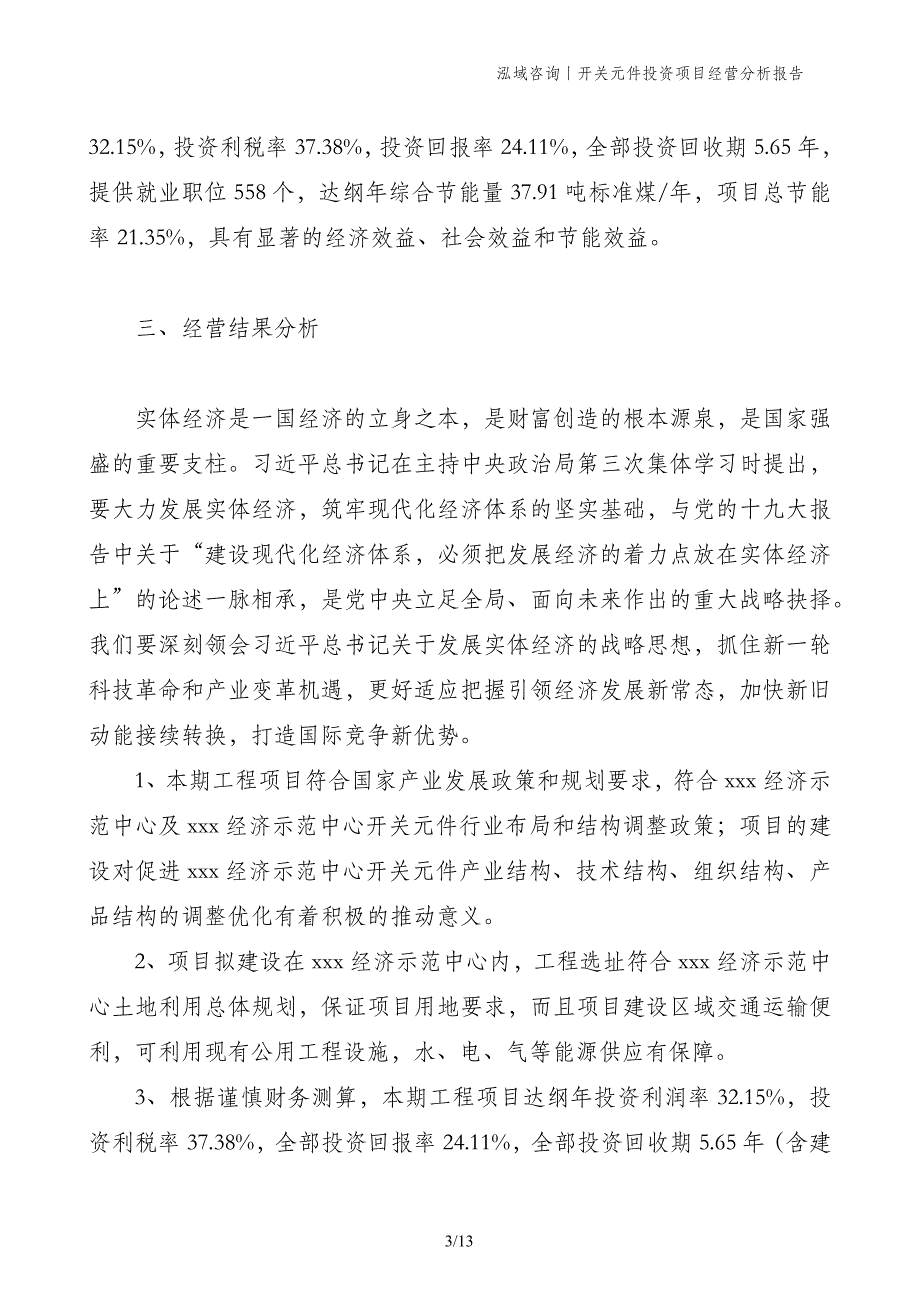 泓域咨询丨开关元件投资项目经营分析报告
32.15%，投资利税率 37.38%，投资回报率 24.11%，全部投资回收期 5.65 年，
提供就业职位 558 个，达纲年综合节能量 37.91 吨标准煤/年，项目总节能
率 21.35%，具有显著的经济效益、社会效益和节能效益。
三、经营结果分析
实体经济是一国经济的立身之本，是财富创造的根本源泉，是国家强
盛的重要支柱。习近平总书记在主持中央政治局第三次集体学习时提出，
要大力发展实体经济，筑牢现代化经济体系的坚实基础，与党的十九大报
告中关于“建设现代化经济体系，必须把发展经济的着力点放在实体经济
上”的论述一脉相承，是党中央立足全局、面向未来作出的重大战略抉择。
我们要深刻领会习近平总书记关于发展实体经济的战略思想，抓住新一轮
科技革命和产业变革机遇，更好适应把握引领经济发展新常态，加快新旧
动能接续转换，打造国际竞争新优势。
1、本期工程项目符合国家产业发展政策和规划要求，符合 xxx 经济示
范中心及 xxx 经济示范中心开关元件行业布局和结构调整政策；项目的建
设对促进 xxx 经济示范中心开关元件产业结构、技术结构、组织结构、产
品结构的调整优化有着积极的推动意义。
2、项目拟建设在 xxx 经济示范中心内，工程选址符合 xxx 经济示范中
心土地利用总体规划，保证项目用地要求，而且项目建设区域交通运输便
利，可利用现有公用工程设施，水、电、气等能源供应有保障。
3、根据谨慎财务测算，本期工程项目达纲年投资利润率 32.15%，投
资利税率 37.38%，全部投资回报率 24.11%，全部投资回收期 5.65 年（含建
3/13